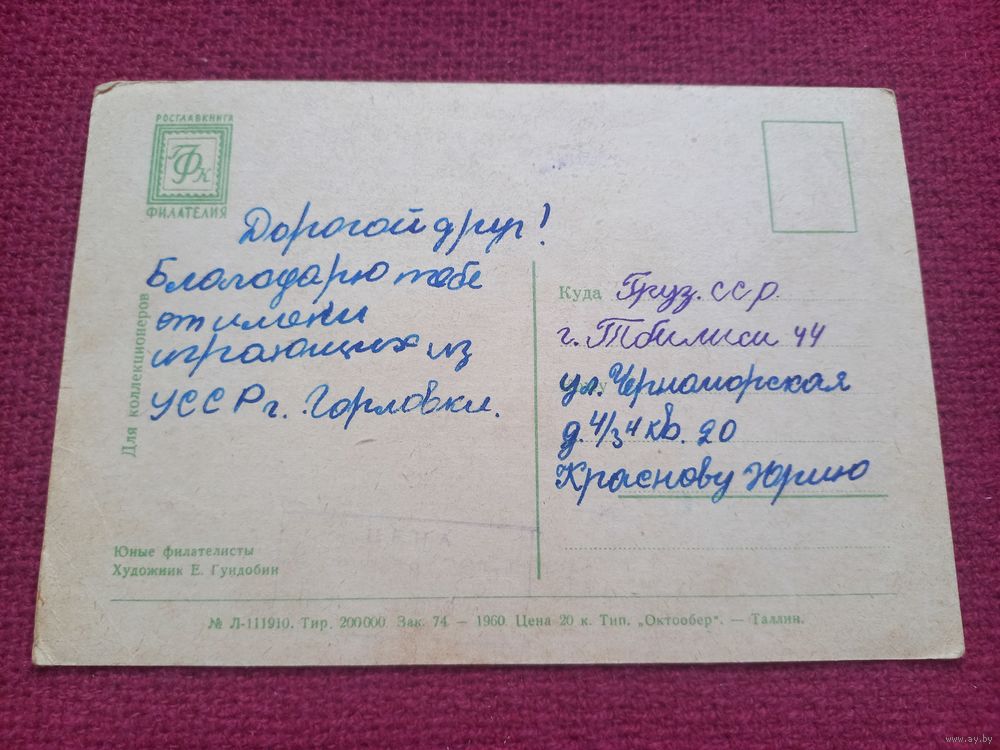 РОСГЛАВКНИГА
ФК
ФИЛАТЕЛИЯ
Для коллекционеров
Дорогой друг!
Благодарю тебе
от имени
играющих из
УССР г. Горловки.
Куда Груз. ССР.
г. Тбилиси 44
ул. Черноморская
д. 4/34 кв. 20
Краснову Юрию
ЦЕНА
Юные филателисты
Художник Е. Гундобин
№ Л-111910. Тир. 200000. Зак. 74 — 1960. Цена 20 к. Тип. „Октообер". — Таллин.
www.ay.by